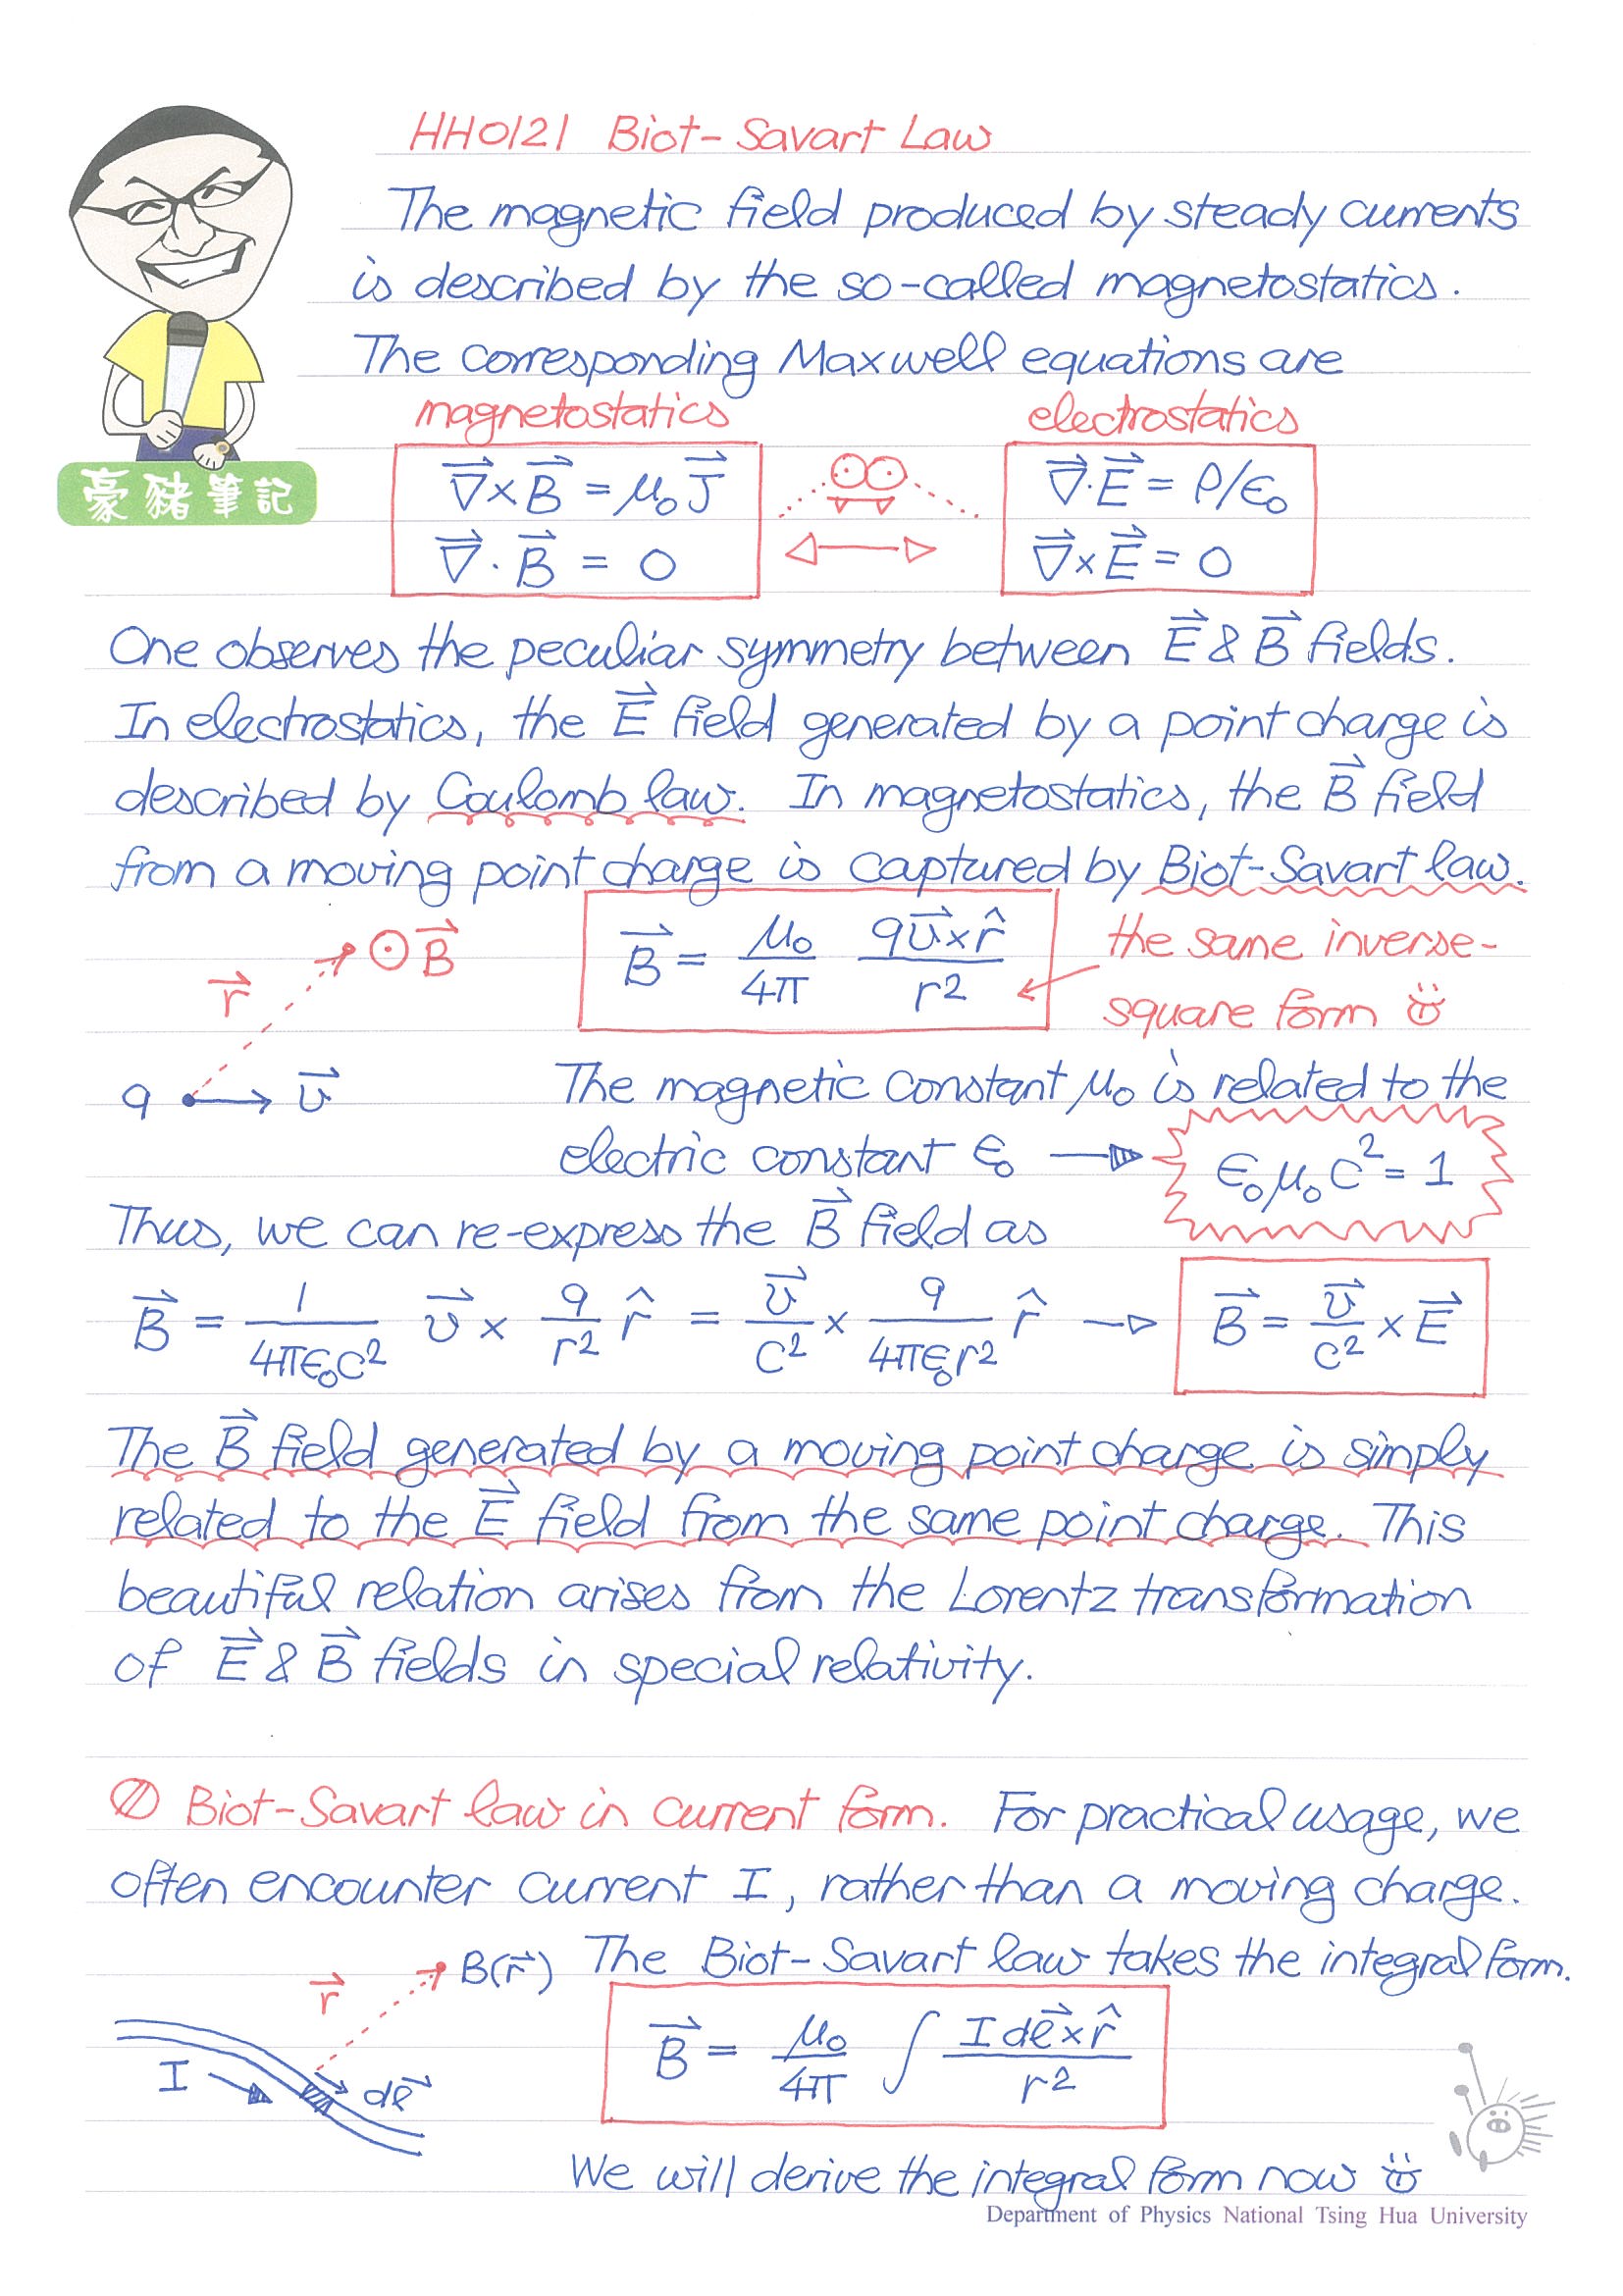 HH0121 Biot-Savart Law
The magnetic field produced by steady currents
is described by the so-called magnetostatics.
The corresponding Maxwell equations are
magnetostatics electrostatics
豪豬筆記
∇⃗×B⃗ = μ₀J⃗ ∇⃗·E⃗ = ρ/ϵ₀
∇⃗·B⃗ = 0 ∇⃗×E⃗ = 0
One observes the peculiar symmetry between E⃗ & B⃗ fields.
In electrostatics, the E⃗ field generated by a point charge is
described by Coulomb law. In magnetostatics, the B⃗ field
from a moving point charge is captured by Biot-Savart law.
r⃗ ⊙ B⃗
q v⃗
B⃗ = μ₀/4π qv⃗×r̂/r²
the same inverse-
square form
The magnetic constant μ₀ is related to the
electric constant ϵ₀ → ϵ₀μ₀c² = 1
Thus, we can re-express the B⃗ field as
B⃗ = 1/4πϵ₀c² v⃗ × q/r² r̂ = v⃗/c² × q/4πϵ₀r² r̂ → B⃗ = v⃗/c² × E⃗
The B⃗ field generated by a moving point charge is simply
related to the E⃗ field from the same point charge. This
beautiful relation arises from the Lorentz transformation
of E⃗ & B⃗ fields in special relativity.
Biot-Savart law in current form. For practical usage, we
often encounter current I, rather than a moving charge.
r⃗ B(r⃗) The Biot-Savart law takes the integral form.
I dℓ⃗
B⃗ = μ₀/4π ∫ I dℓ⃗×r̂/r²
We will derive the integral form now
Department of Physics National Tsing Hua University